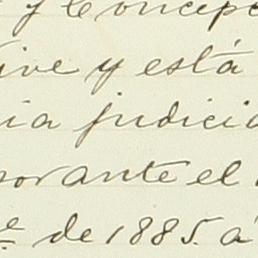 y Concepc
vive y está
ia judicia
norante el
e de 1885. á